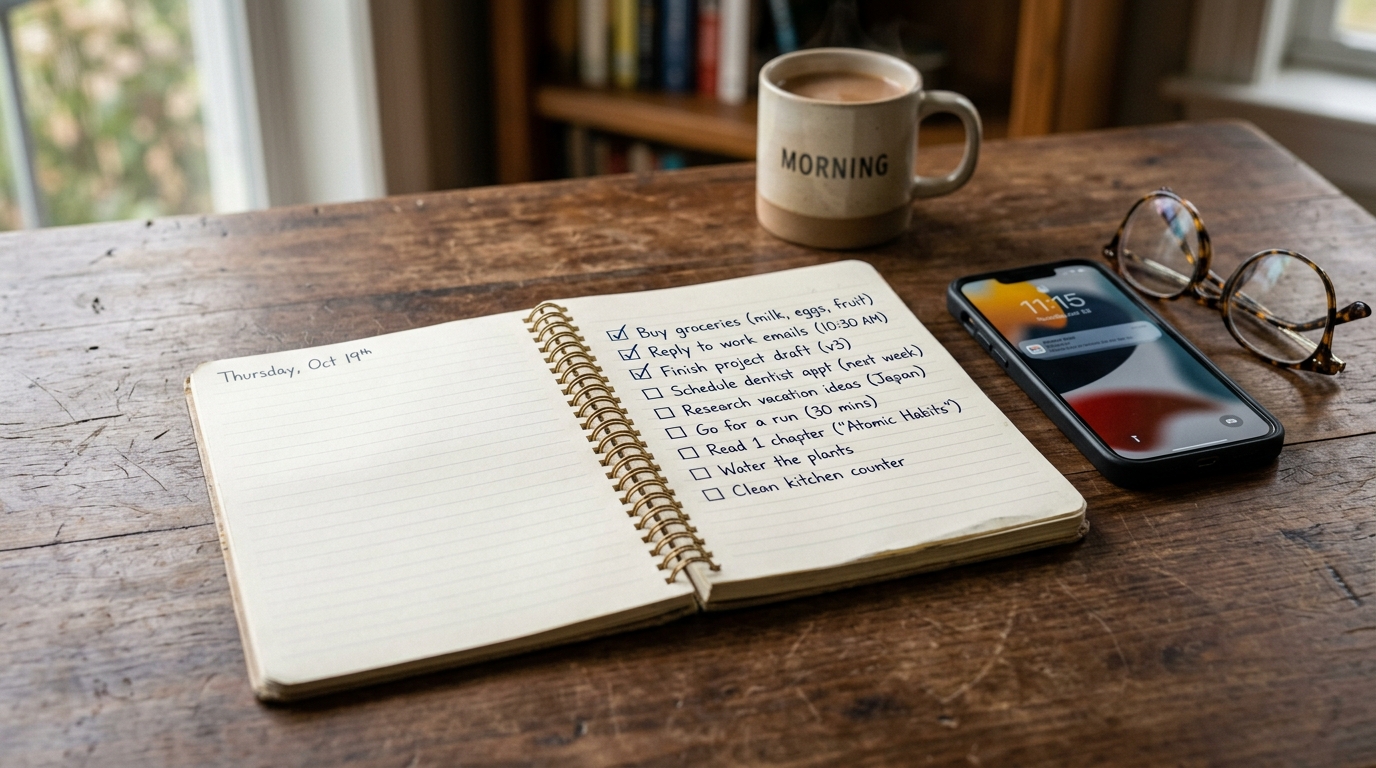 MORNING
Thursday, Oct 19th
Buy groceries (milk, eggs, fruit)
Reply to work emails (10:30 AM)
Finish project draft (v3)
Schedule dentist appt (next week)
Research vacation ideas (Japan)
Go for a run (30 mins)
Read 1 chapter ("Atomic Habits")
Water the plants
Clean kitchen counter
11:15